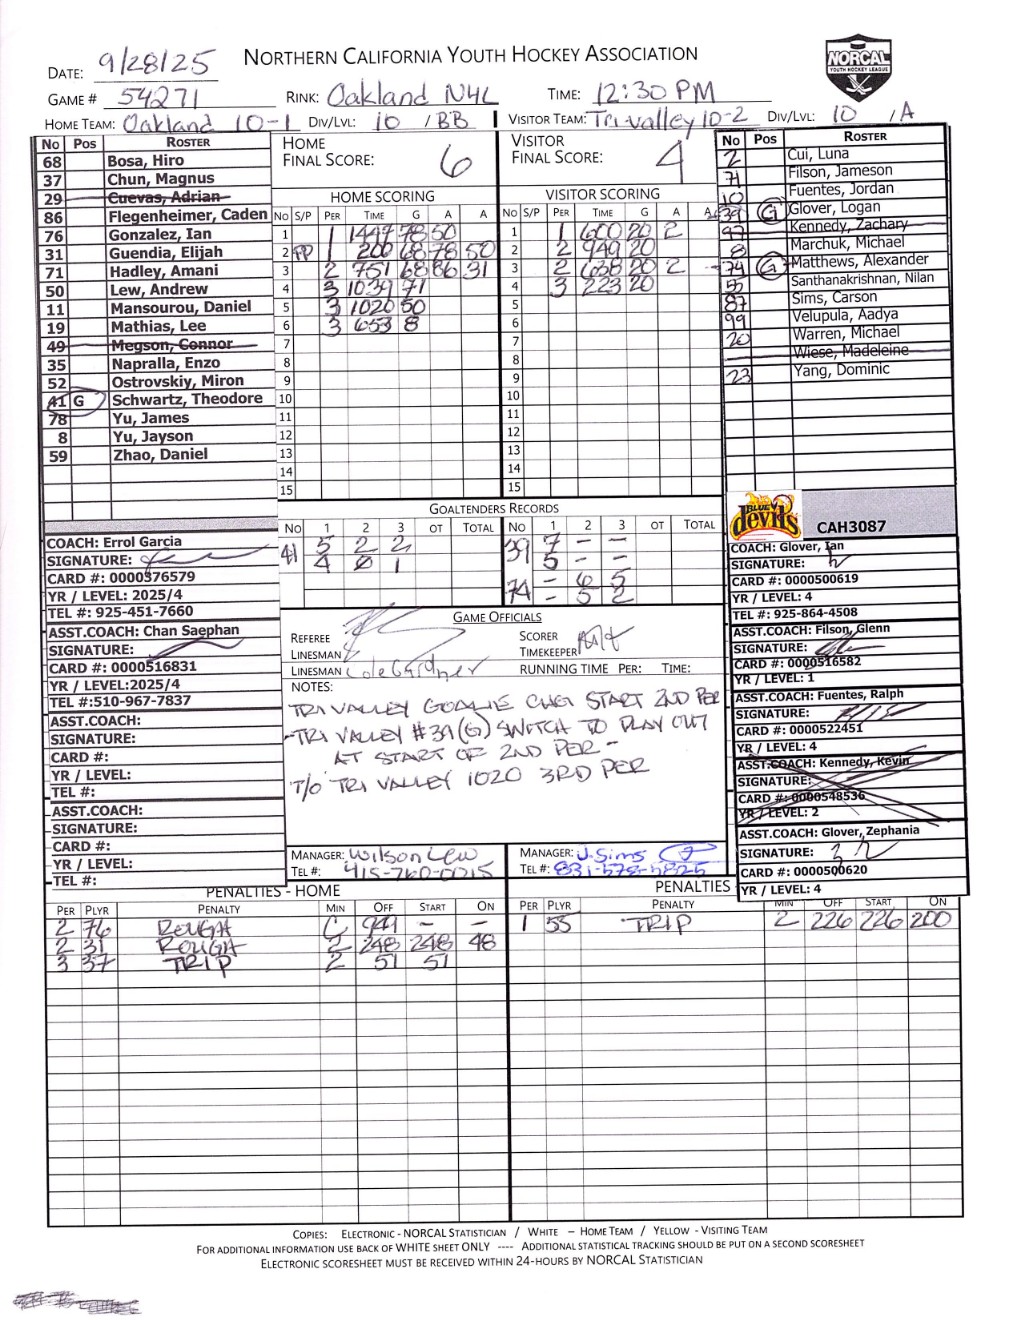 NORTHERN CALIFORNIA YOUTH HOCKEY ASSOCIATION
NORCAL
YOUTH HOCKEY LEAGUE
DATE: 9/28/25
GAME # 54271 RINK: Oakland NYL TIME: 12:30 PM
HOME TEAM: Oakland 10-1 DIV/LVL: 10 /BB VISITOR TEAM: Tri-valley 10-2 DIV/LVL: 10 /A
No Pos ROSTER
68 Bosa, Hiro
37 Chun, Magnus
29 Cuevas, Adrian
86 Flegenheimer, Caden
76 Gonzalez, Ian
31 Guendia, Elijah
71 Hadley, Amani
50 Lew, Andrew
11 Mansourou, Daniel
19 Mathias, Lee
49 Megson, Connor
35 Napralla, Enzo
52 Ostrovskiy, Miron
41 G Schwartz, Theodore
78 Yu, James
8 Yu, Jayson
59 Zhao, Daniel
HOME
FINAL SCORE: 6
HOME SCORING
NO S/P PER TIME G A A
1 1 1447 78 50
2 PP 1 200 68 78 50
3 2 751 68 86 31
4 3 1039 71
5 3 1020 50
6 3 653 8
7
8
9
10
11
12
13
14
15
VISITOR
FINAL SCORE: 4
VISITOR SCORING
NO S/P PER TIME G A A
1 1 600 20 2
2 2 949 20
3 2 638 20 2
4 3 223 20
5
6
7
8
9
10
11
12
13
14
15
No Pos ROSTER
2 Cui, Luna
71 Filson, Jameson
10 Fuentes, Jordan
39 G Glover, Logan
97 Kennedy, Zachary
8 Marchuk, Michael
74 G Matthews, Alexander
55 Santhanakrishnan, Nilan
87 Sims, Carson
99 Velupula, Aadya
20 Warren, Michael
Wiese, Madeleine
23 Yang, Dominic
GOALTENDERS RECORDS
NO 1 2 3 OT TOTAL NO 1 2 3 OT TOTAL
41 5 2 2 39 7 - -
4 0 1 5 - -
74 - 6 5
- 5 2
COACH: Errol Garcia
SIGNATURE:
CARD #: 0000376579
YR / LEVEL: 2025/4
TEL #: 925-451-7660
ASST.COACH: Chan Saephan
SIGNATURE:
CARD #: 0000516831
YR / LEVEL:2025/4
TEL #:510-967-7837
ASST.COACH:
SIGNATURE:
CARD #:
YR / LEVEL:
TEL #:
ASST.COACH:
SIGNATURE:
CARD #:
YR / LEVEL:
TEL #:
GAME OFFICIALS
REFEREE
LINESMAN
LINESMAN Cole Gardner
SCORER
TIMEKEEPER
RUNNING TIME PER: TIME:
NOTES:
TRI VALLEY GOALIE CHG START 2ND PER
-TRI VALLEY #39(G) SWITCH TO PLAY OUT
AT START OF 2ND PER -
T/O TRI VALLEY 1020 3RD PER
MANAGER: Wilson Lew
TEL #: 415-760-0015
MANAGER: J. Sims
TEL #: 831-578-5825
BLUE devils CAH3087
COACH: Glover, Ian
SIGNATURE:
CARD #: 0000500619
YR / LEVEL: 4
TEL #: 925-864-4508
ASST.COACH: Filson, Glenn
SIGNATURE:
CARD #: 0000516582
YR / LEVEL: 1
ASST.COACH: Fuentes, Ralph
SIGNATURE:
CARD #: 0000522451
YR / LEVEL: 4
ASST.COACH: Kennedy, Kevin
SIGNATURE:
CARD #: 0000548536
YR / LEVEL: 2
ASST.COACH: Glover, Zephania
SIGNATURE:
CARD #: 0000500620
YR / LEVEL: 4
PENALTIES - HOME
PER PLYR PENALTY MIN OFF START ON
2 76 ROUGH C 949 - -
2 31 ROUGH 2 248 248 48
3 37 TRIP 2 51 51
PENALTIES -
PER PLYR PENALTY MIN OFF START ON
1 55 TRIP 2 226 226 200
COPIES: ELECTRONIC - NORCAL STATISTICIAN / WHITE – HOME TEAM / YELLOW - VISITING TEAM
FOR ADDITIONAL INFORMATION USE BACK OF WHITE SHEET ONLY ---- ADDITIONAL STATISTICAL TRACKING SHOULD BE PUT ON A SECOND SCORESHEET
ELECTRONIC SCORESHEET MUST BE RECEIVED WITHIN 24-HOURS BY NORCAL STATISTICIAN